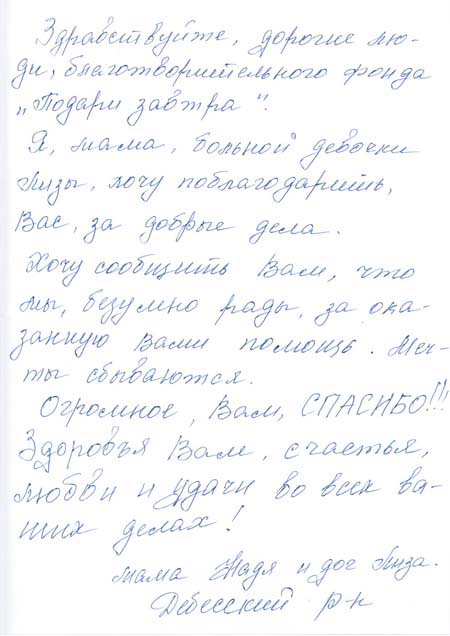 Здравствуйте, дорогие лю-
ди, благотворительного фонда
„Подари завтра".
Я, мама, больной девочки
Лизы, хочу поблагодарить,
Вас, за добрые дела.
Хочу сообщить Вам, что
мы, безумно рады, за ока-
занную Вами помощь. Меч-
ты сбываются.
Огромное, Вам, СПАСИБО!!!
Здоровья Вам, счастья,
любви и удачи во всех ва-
ших делах!
Мама Надя и доч Лиза.
Дебесский р-н